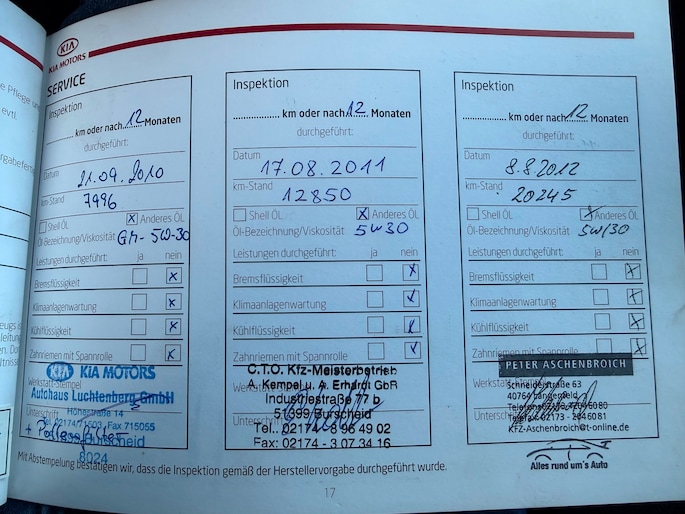 KIA
KIA MOTORS
SERVICE
Inspektion
km oder nach 12 Monaten
durchgeführt:
Datum
21.09.2010
km-Stand
7996
Shell Öl x Anderes Öl
Öl-Bezeichnung/Viskosität 5W-30
Leistungen durchgeführt: ja nein
Bremsflüssigkeit x
Klimaanlagenwartung x
Kühlflüssigkeit x
Zahnriemen mit Spannrolle x
KIA MOTORS
Werkstatt-Stempel
Autohaus Luchtenberg GmbH
Höhestraße 14
Unterschrift
Tel. 02174/71603 · Fax 715055
Burscheid
8024
Inspektion
km oder nach 12 Monaten
durchgeführt:
Datum
17.08.2011
km-Stand
12850
Shell Öl x Anderes Öl
Öl-Bezeichnung/Viskosität 5W30
Leistungen durchgeführt: ja nein
Bremsflüssigkeit x
Klimaanlagenwartung x
Kühlflüssigkeit x
Zahnriemen mit Spannrolle x
C.T.O. Kfz-Meisterbetrieb
A. Kempel u. A. Erhardt GbR
Industriestraße 77 b
51399 Burscheid
Tel.: 02174 - 8 96 49 02
Fax: 02174 - 3 07 34 16
Inspektion
km oder nach 12 Monaten
durchgeführt:
Datum
8.8.2012
km-Stand
20245
Shell Öl x Anderes Öl
Öl-Bezeichnung/Viskosität 5W/30
Leistungen durchgeführt: ja nein
Bremsflüssigkeit x
Klimaanlagenwartung x
Kühlflüssigkeit x
Zahnriemen mit Spannrolle x
PETER ASCHENBROICH
Schneiderstraße 63
40764 Langenfeld
Telefon 02173 - 2046080
Telefax 02173 - 2046081
KFZ-Aschenbroich@t-online.de
Alles rund um's Auto
Mit Abstempelung bestätigen wir, dass die Inspektion gemäß der Herstellervorgabe durchgeführt wurde.
17